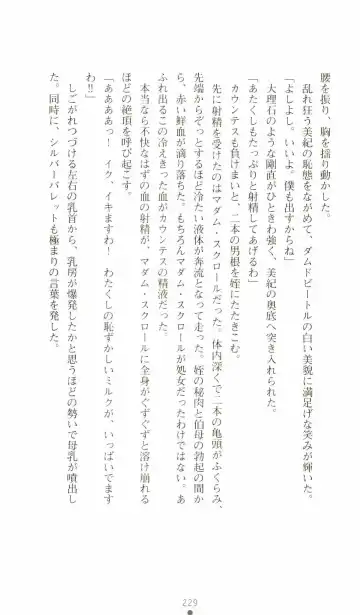 腰を振り、胸を揺り動かした。
乱れ狂う美紀の恥態をながめて、ダムドビートルの白い美貌に満足げな笑みが輝いた。
「よしよし。いいよ。僕も出すからね」
大理石のような剛直がひときわ強く、美紀の奥底へ突き入れられた。
「あたくしもたっぷりと射精してあげるわ」
カウンテスも負けまいと、二本の男根を姪にたたきこむ。
先に射精を受けたのはマダム・スクロールだった。体内深くで二本の亀頭がふくらみ、
先端からぞっとするほど冷たい液体が奔流となって走った。姪の秘肉と伯母の勃起の間か
ら、赤い鮮血が滴り落ちた。もちろんマダム・スクロールが処女だったわけではない。あ
ふれ出るこの冷えきった血がカウンテスの精液だった。
本当なら不快なはずの血の射精が、マダム・スクロールに全身がぐずぐずと溶け崩れる
ほどの絶頂を呼び起こす。
「ああああっ！　イク、イキますわ！　わたくしの恥ずかしいミルクが、いっぱいでます
わ!!」
しごかれつづける左右の乳首から、乳房が爆発したかと思うほどの勢いで母乳が噴出し
た。同時に、シルバーバレットも極まりの言葉を発した。
229